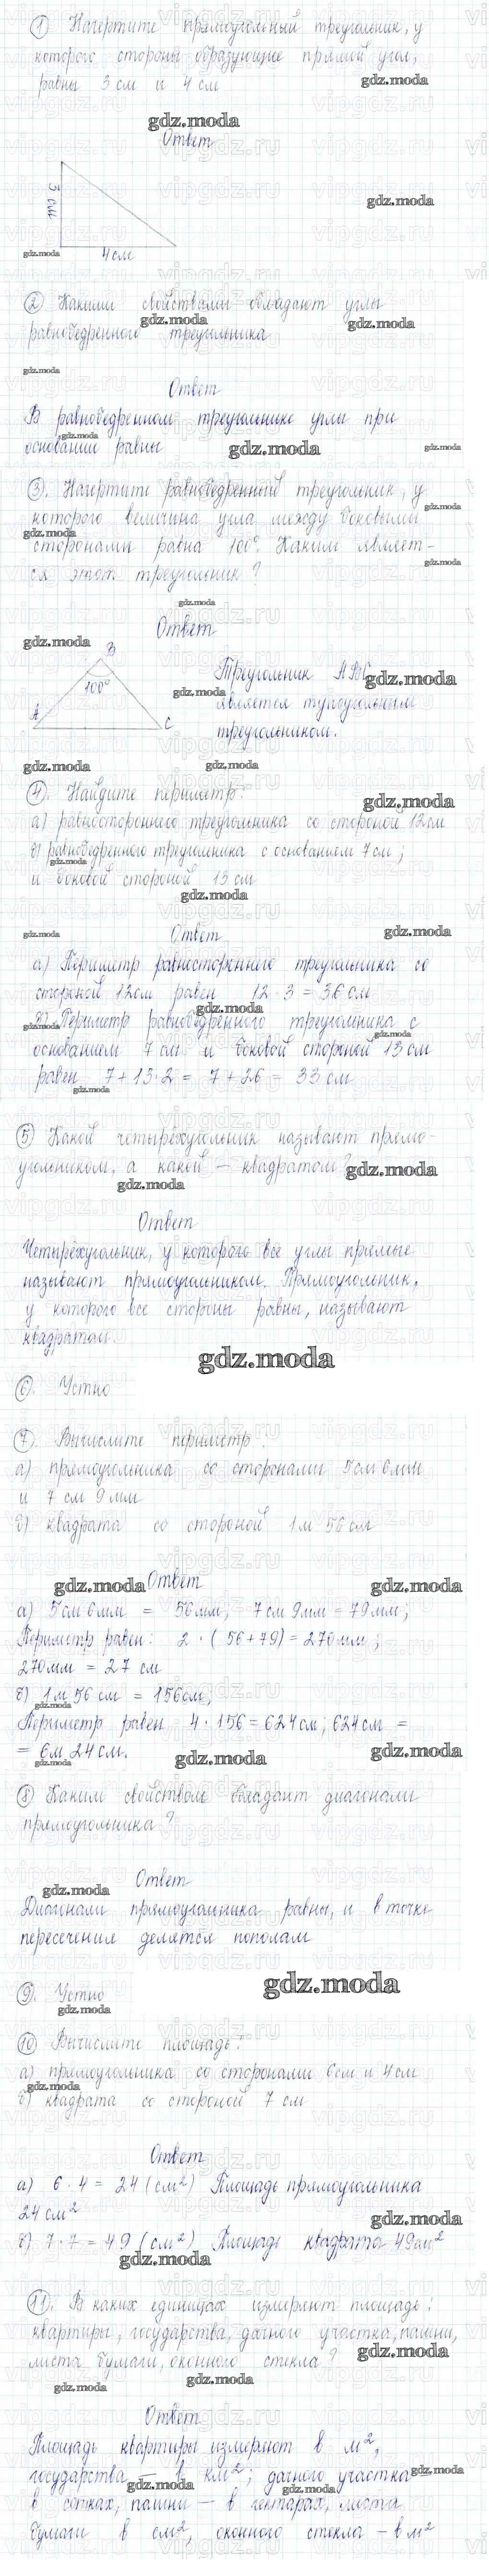 1 Начертите прямоугольный треугольник, у
которого стороны образующие прямой угол,
равны 3 см и 4 см
gdz.moda
gdz.moda
Ответ
gdz.moda
3 см
4 см
gdz.moda
2 Какими свойствами обладают углы
gdz.moda
gdz.moda
равнобедренного треугольника
gdz.moda
Ответ
В равнобедренном треугольнике углы при
gdz.moda
основании равны
gdz.moda
gdz.moda
3. Начертите равнобедренный треугольник, у
которого величина угла между боковыми
gdz.moda
gdz.moda
сторонами равна 100°. Каким являет-
ся этот треугольник?
gdz.moda
gdz.moda
Ответ
gdz.moda
B
100°
A
C
Треугольник ABC
gdz.moda
gdz.moda
является тупоугольным
треугольником.
gdz.moda
gdz.moda
4. Найдите периметр:
gdz.moda
а) равностороннего треугольника со стороной 12 см
б) равнобедренного треугольника с основанием 7 см;
gdz.moda
и боковой стороной 13 см
gdz.moda
gdz.moda
gdz.moda
Ответ
а) Периметр равностороннего треугольника со
стороной 12 см равен 12 · 3 = 36 см
gdz.moda
б) Периметр равнобедренного треугольника с
gdz.moda
gdz.moda
основанием 7 см и боковой стороной 13 см
равен 7 + 13 · 2 = 7 + 26 = 33 см
gdz.moda
5 Какой четырёхугольник называют прямо-
угольником, а какой – квадратом?
gdz.moda
gdz.moda
Ответ
Четырёхугольник, у которого все углы прямые
называют прямоугольником. Прямоугольник,
у которого все стороны равны, называют
квадратом.
gdz.moda
6. Устно
7. Вычислите периметр:
а) прямоугольника со сторонами 5 см 6 мм
и 7 см 9 мм
б) квадрата со стороной 1 м 56 см
gdz.moda
Ответ
gdz.moda
а) 5 см 6 мм = 56 мм, 7 см 9 мм = 79 мм;
Периметр равен: 2 · (56 + 79) = 270 мм;
270 мм = 27 см
б) 1 м 56 см = 156 см,
gdz.moda
Периметр равен 4 · 156 = 624 см; 624 см =
= 6 м 24 см.
gdz.moda
gdz.moda
gdz.moda
8 Каким свойством обладают диагонали
прямоугольника?
Ответ
gdz.moda
Диагонали прямоугольника равны, и в точке
пересечения делятся пополам
9. Устно
gdz.moda
gdz.moda
10 Вычислите площадь:
а) прямоугольника со сторонами 6 см и 4 см
gdz.moda
б) квадрата со стороной 7 см
Ответ
а) 6 · 4 = 24 (см²) Площадь прямоугольника
24 см²
gdz.moda
б) 7 · 7 = 49 (см²) Площадь квадрата 49 см²
gdz.moda
11. В каких единицах измеряют площадь:
квартиры, государства, дачного участка, пашни,
листа бумаги, оконного стекла?
gdz.moda
gdz.moda
gdz.moda
Ответ
Площадь квартиры измеряют в м²,
государства – в км²; дачного участка –
gdz.moda
gdz.moda
gdz.moda
в сотках, пашни – в гектарах, листа
бумаги в см², оконного стекла – в м²